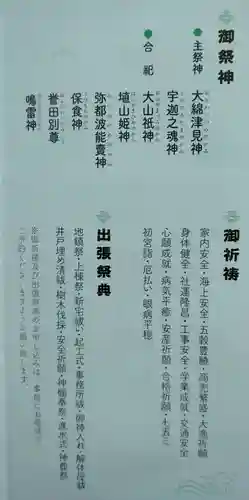 御祭神
●主祭神
大綿津見神
宇迦之魂神
●合祀
大山祇神
埴山姫神
弥都波能賣神
保食神
誉田別尊
鳴雷神
御祈祷
家内安全・海上安全・五穀豊饒・商売繁盛・大漁祈願
身体健全・社運隆昌・工事安全・学業成就・交通安全
心願成就・病気平癒・安産祈願・合格祈願・七五三
初宮詣・厄払い・眼病平穏
出張祭典
地鎮祭・上棟祭・新宅祓い・起工式・事務所祓・御神入れ・解体清祓
井戸埋め清祓・樹木伐採・安全祈願・神棚奉祭・進水式・神葬祭
※御祈祷及び出張祭典のお申し込みは、事前に